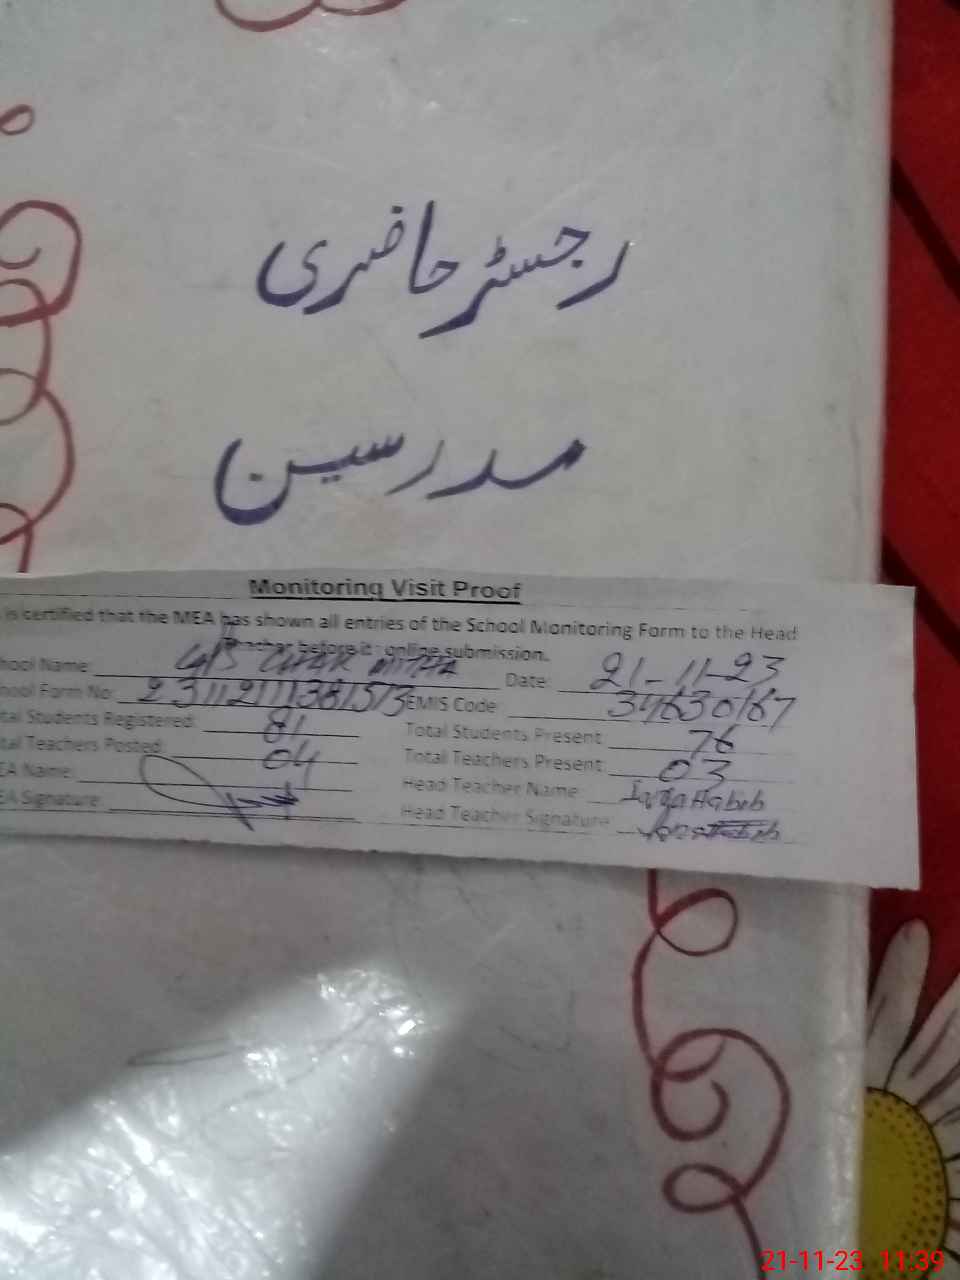 رجسٹر حاضری
مدرسین
Monitoring Visit Proof
is certified that the MEA has shown all entries of the School Monitoring Form to the Head
Teacher before it online submission.
hool Name: CHAK MITHA Date: 21-11-23
hool Form No: EMIS Code: 34630167
tal Students Registered: 81 Total Students Present: 76
tal Teachers Posted: 04 Total Teachers Present: 03
EA Name: Head Teacher Name:
EA Signature: Head Teacher Signature:
21-11-23 11:39